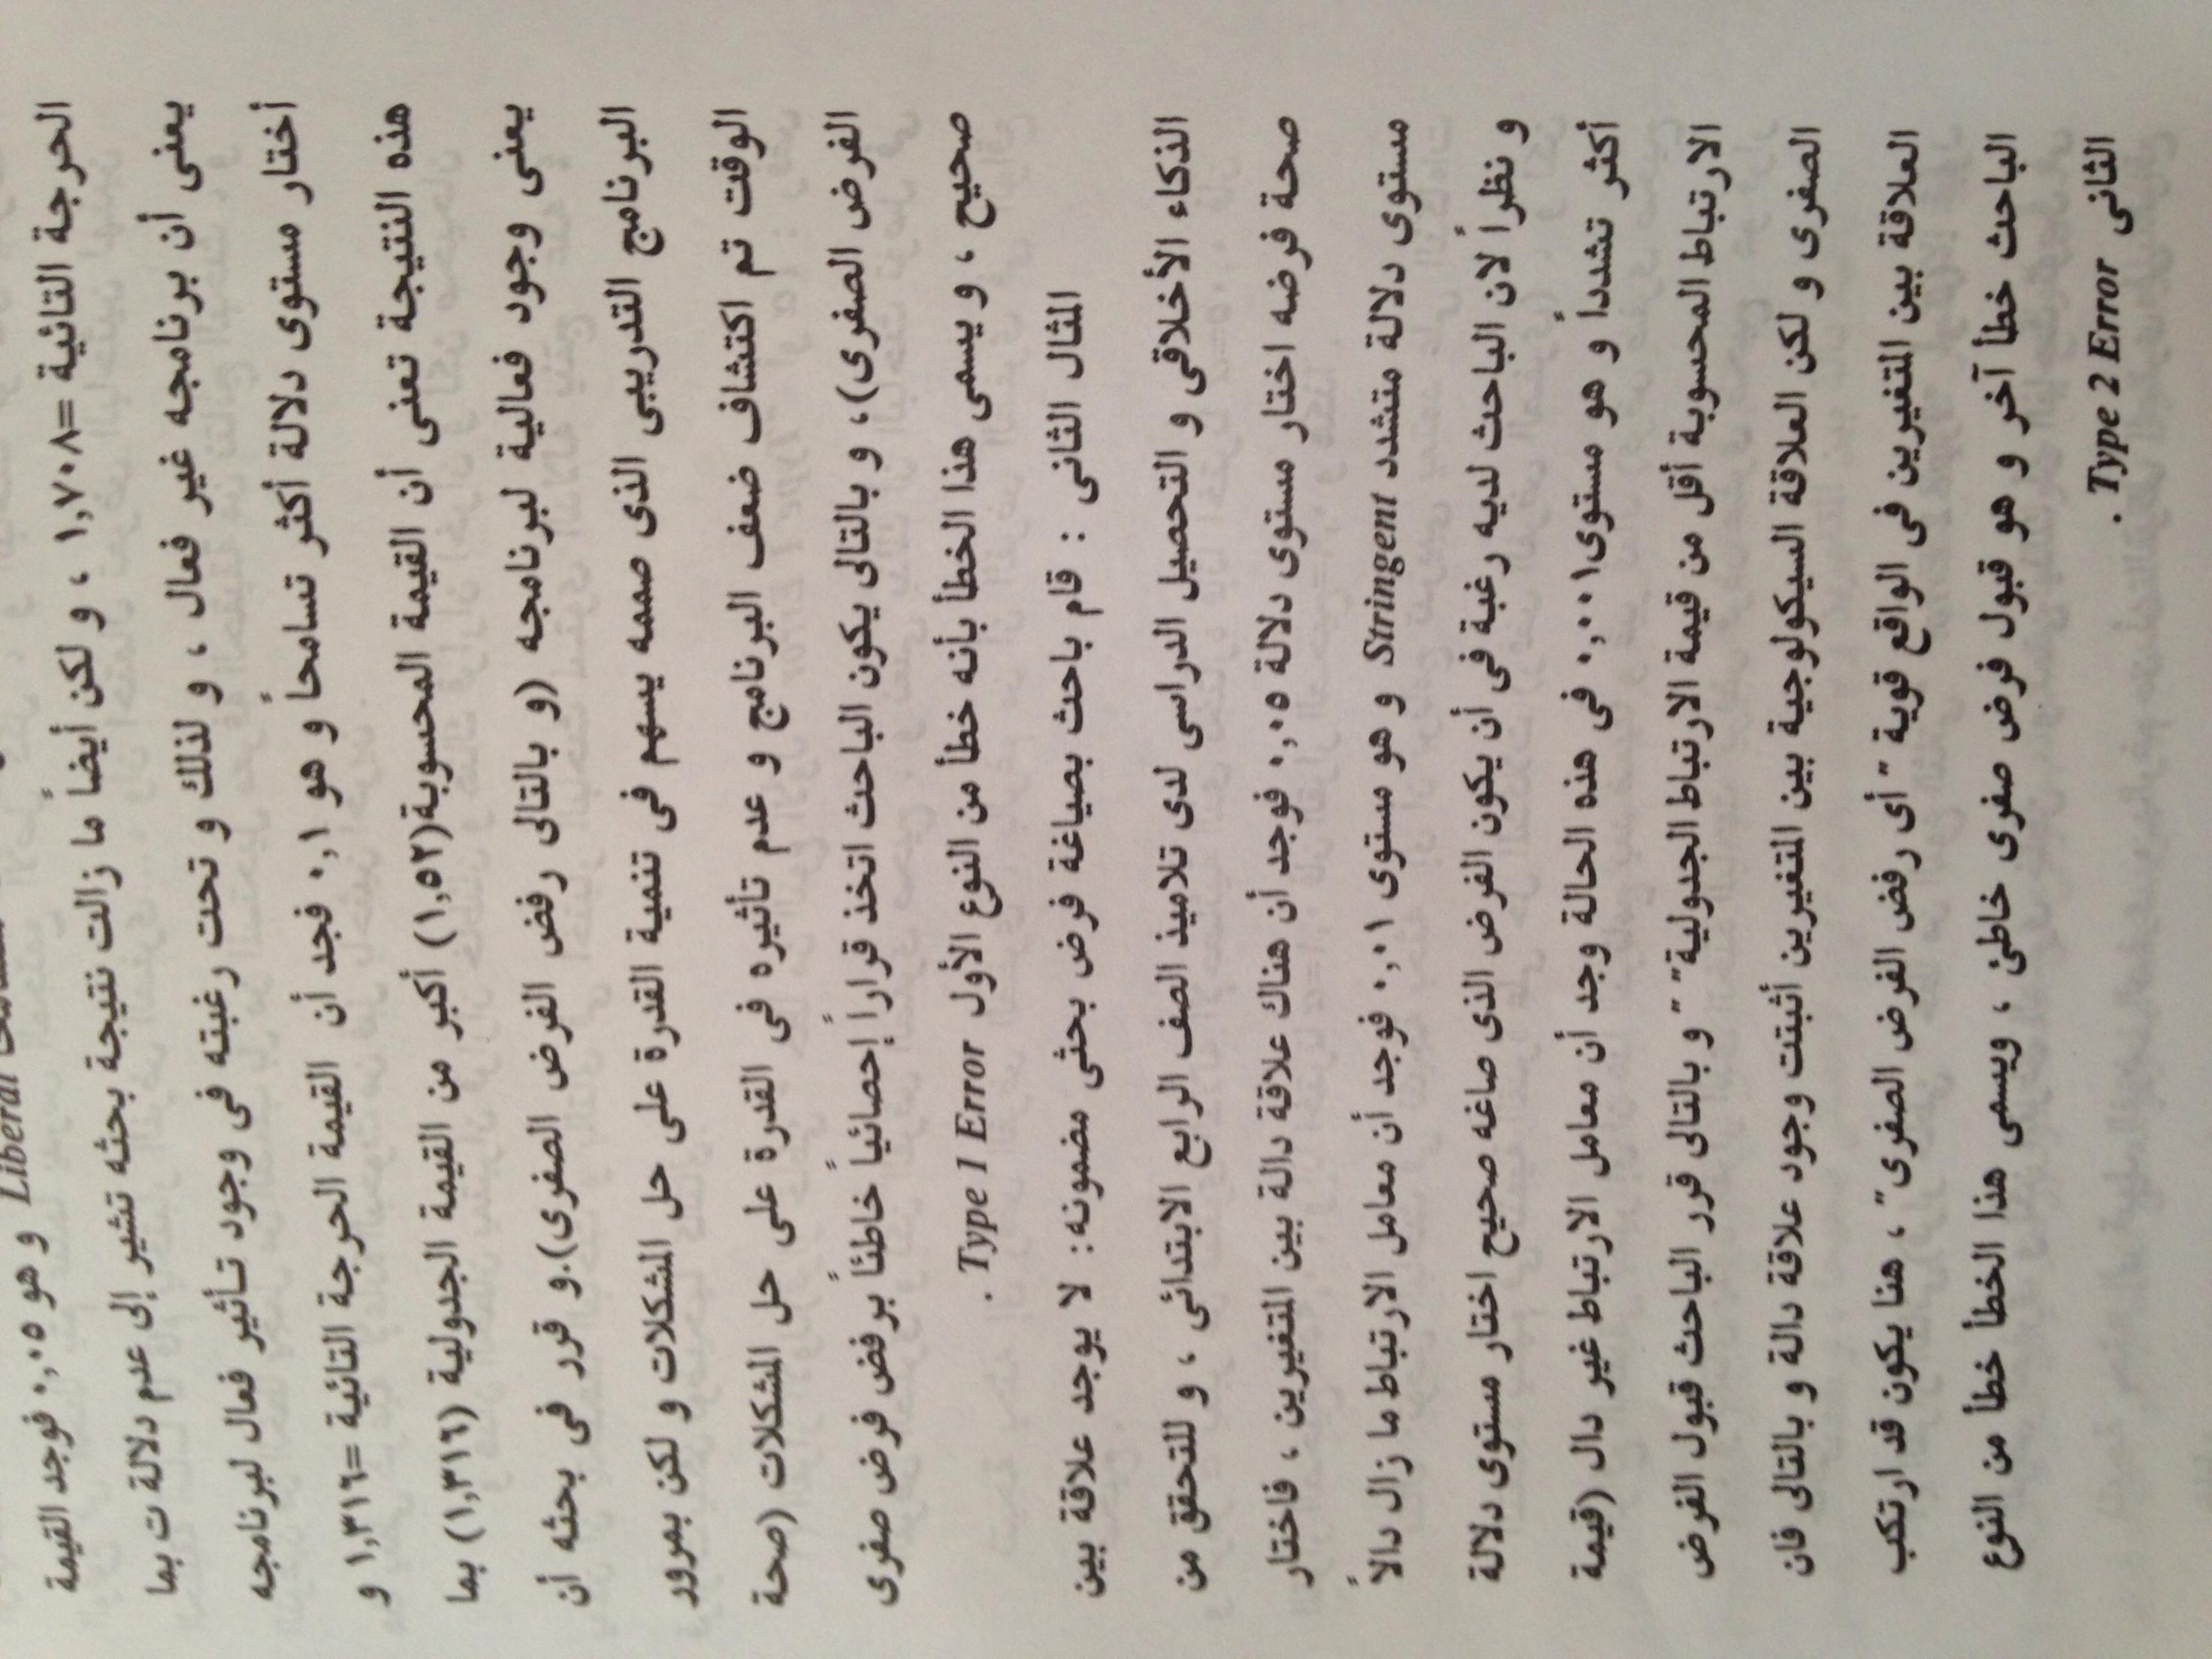 Liberal و هو ٠,٠٥ فوجد القيمة
الحرجة التائية =١,٧٠٨ ، و لكن أيضاً ما زالت نتيجة بحثه تشير إلى عدم دلالة ت بما
يعنى أن برنامجه غير فعال ، و لذلك و تحت رغبته فى وجود تأثير فعال لبرنامجه
أختار مستوى دلالة أكثر تسامحاً و هو ٠,١ فجد أن القيمة الحرجة التائية =١,٣١٦ و
هذه النتيجة تعنى أن القيمة المحسوبة(١,٥٢) أكبر من القيمة الجدولية (١,٣١٦) بما
يعنى وجود فعالية لبرنامجه (و بالتالى رفض الفرض الصفرى).و قرر فى بحثه أن
البرنامج التدريبى الذى صممه يسهم فى تنمية القدرة على حل المشكلات و لكن بمرور
الوقت تم اكتشاف ضعف البرنامج و عدم تأثيره فى القدرة على حل المشكلات (صحة
الفرض الصفرى)، و بالتالى يكون الباحث اتخذ قراراً إحصائياً خاطئاً برفض فرض صفرى
صحيح ، و يسمى هذا الخطأ بأنه خطأ من النوع الأول Type 1 Error .
المثال الثانى : قام باحث بصياغة فرض بحثى مضمونه: لا يوجد علاقة بين
الذكاء الأخلاقى و التحصيل الدراسى لدى تلاميذ الصف الرابع الابتدائى ، و للتحقق من
صحة فرضه اختار مستوى دلالة ٠,٠٥ فوجد أن هناك علاقة دالة بين المتغيرين ، فاختار
مستوى دلالة متشدد Stringent و هو مستوى ٠,٠١ فوجد أن معامل الارتباط ما زال دالاً
و نظراً لان الباحث لديه رغبة فى أن يكون الفرض الذى صاغه صحيح اختار مستوى دلالة
أكثر تشدداً و هو مستوى٠,٠٠١ فى هذه الحالة وجد أن معامل الارتباط غير دال (قيمة
الارتباط المحسوبة أقل من قيمة الارتباط الجدولية" " و بالتالى قرر الباحث قبول الفرض
الصفرى و لكن العلاقة السيكولوجية بين المتغيرين أثبتت وجود علاقة دالة و بالتالى فان
العلاقة بين المتغيرين فى الواقع قوية "أى رفض الفرض الصفرى" ، هنا يكون قد ارتكب
الباحث خطأ آخر و هو قبول فرض صفرى خاطئ ، ويسمى هذا الخطأ خطأ من النوع
الثانى Type 2 Error .